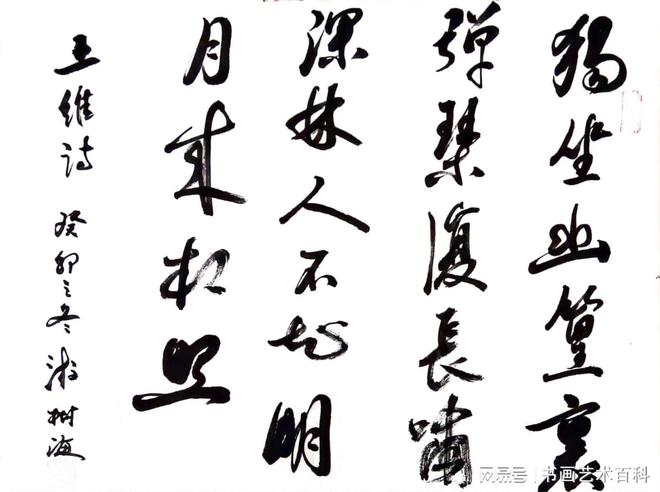 獨坐幽篁裏
彈琴復長嘯
深林人不知明
月來相照
王維诗 癸卯之冬
搜狐号|书画艺术百科